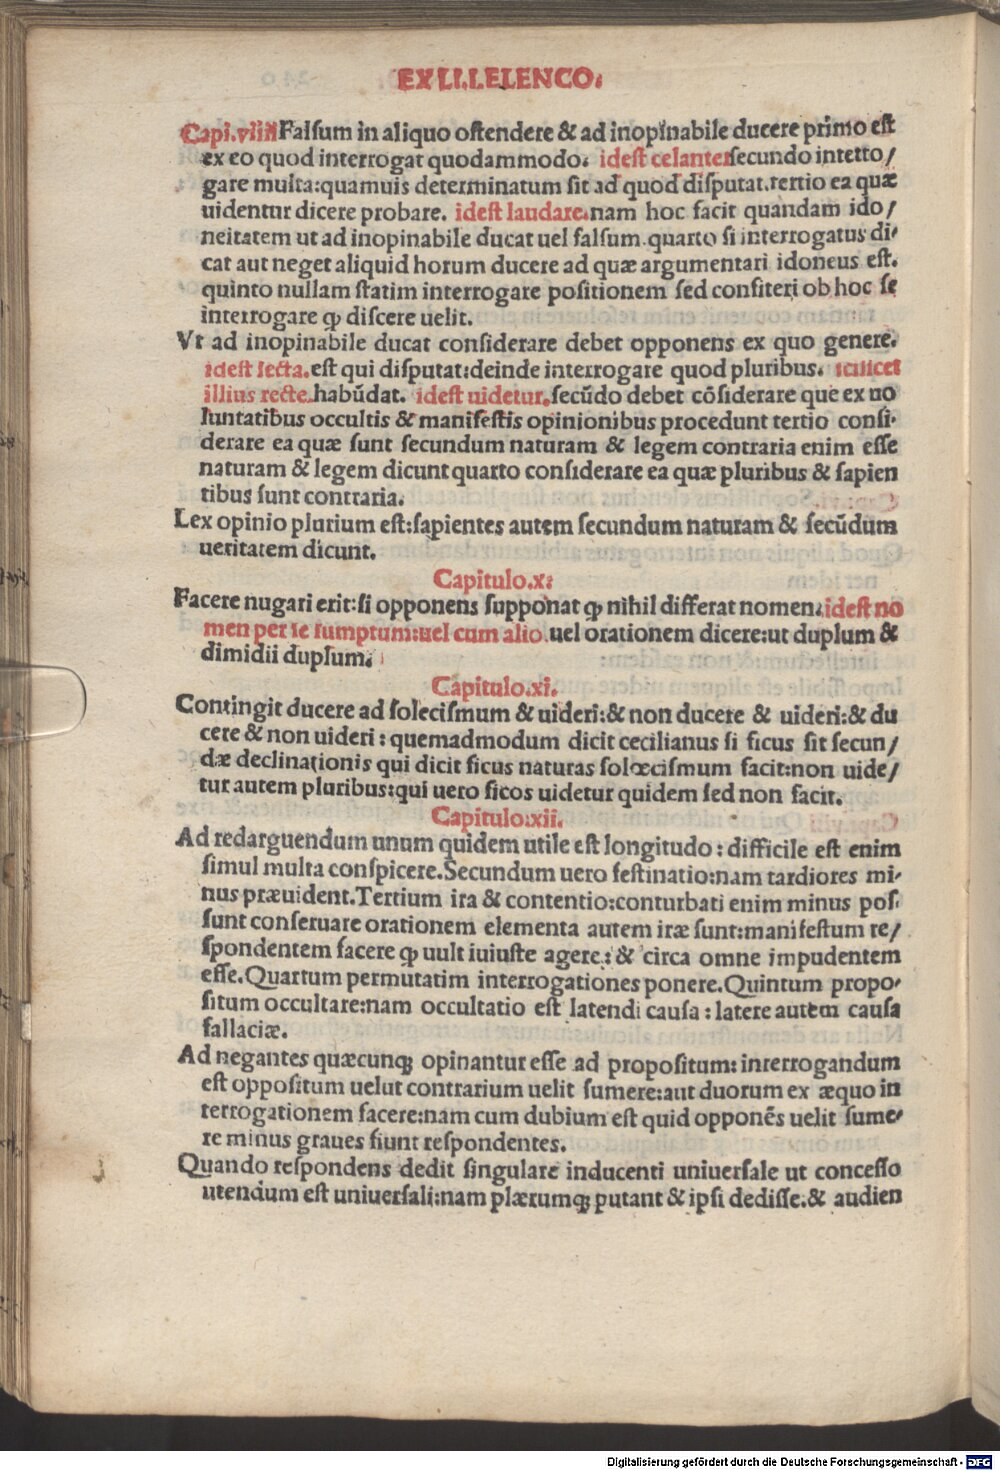 EX LI.I.ELENCO.
Capi.viiii Falſum in aliquo oſtendere & ad inopinabile ducere primo eſt
ex eo quod interrogat quodammodo. ideſt celanter ſecundo intetto/
gare multa:quamuis determinatum ſit ad quod diſputat.tertio ea quæ
uidentur dicere probare. ideſt laudare.nam hoc facit quandam ido/
neitatem ut ad inopinabile ducat uel falſum.quarto ſi interrogatus di-
cat aut neget aliquid horum ducere ad quæ argumentari idoneus eſt.
quinto nullam ſtatim interrogare poſitionem ſed conſiteri ob hoc ſe
interrogare ꝙ diſcere uelit.
Vt ad inopinabile ducat conſiderare debet opponens ex quo genere.
ideſt ſecta.eſt qui diſputat:deinde interrogare quod pluribus. ſcilicet
illius recte.habūdat. ideſt uidetur.ſecūdo debet cōſiderare que ex uo
luntatibus occultis & manifeſtis opinionibus procedunt tertio conſi-
derare ea quæ ſunt ſecundum naturam & legem contraria enim eſſe
naturam & legem dicunt quarto conſiderare ea quæ pluribus & ſapien
tibus ſunt contraria.
Lex opinio plurium eſt:ſapientes autem ſecundum naturam & ſecūdum
ueritatem dicunt.
Capitulo.x.
Facere nugari erit:ſi opponens ſupponat ꝙ nihil differat nomen.ideſt no
men per ſe ſumptum:uel cum alio uel orationem dicere:ut duplum &
dimidii duplum.
Capitulo.xi.
Contingit ducere ad ſoleciſmum & uideri:& non ducere & uideri:& du
cere & non uideri : quemadmodum dicit cecilianus ſi ficus ſit ſecun/
dæ declinationis qui dicit ficus naturas ſolœciſmum facit:non uide/
tur autem pluribus:qui uero ficos uidetur quidem ſed non facit.
Capitulo:xii.
Ad redarguendum unum quidem utile eſt longitudo : difficile eſt enim
ſimul multa conſpicere.Secundum uero feſtinatio:nam tardiores mi-
nus præuident.Tertium ira & contentio:conturbati enim minus poſ-
ſunt conſeruare orationem elementa autem iræ ſunt:manifeſtum re/
ſpondentem facere ꝙ uult iuiuſte agere : & circa omne impudentem
eſſe.Quartum permutatim interrogationes ponere.Quintum propo-
ſitum occultare:nam occultatio eſt latendi cauſa : latere autem cauſa
fallaciæ.
Ad negantes quæcunqꝫ opinantur eſſe ad propoſitum: interrogandum
eſt oppoſitum uelut contrarium uelit ſumere:aut duorum ex æquo in
terrogationem facere:nam cum dubium eſt quid opponēs uelit ſume-
re minus graues fiunt reſpondentes.
Quando reſpondens dedit ſingulare inducenti uniuerſale ut conceſſo
utendum eſt uniuerſali:nam plærumqꝫ putant & ipſi dediſſe.& audien
Digitalisierung gefördert durch die Deutsche Forschungsgemeinschaft - DFG